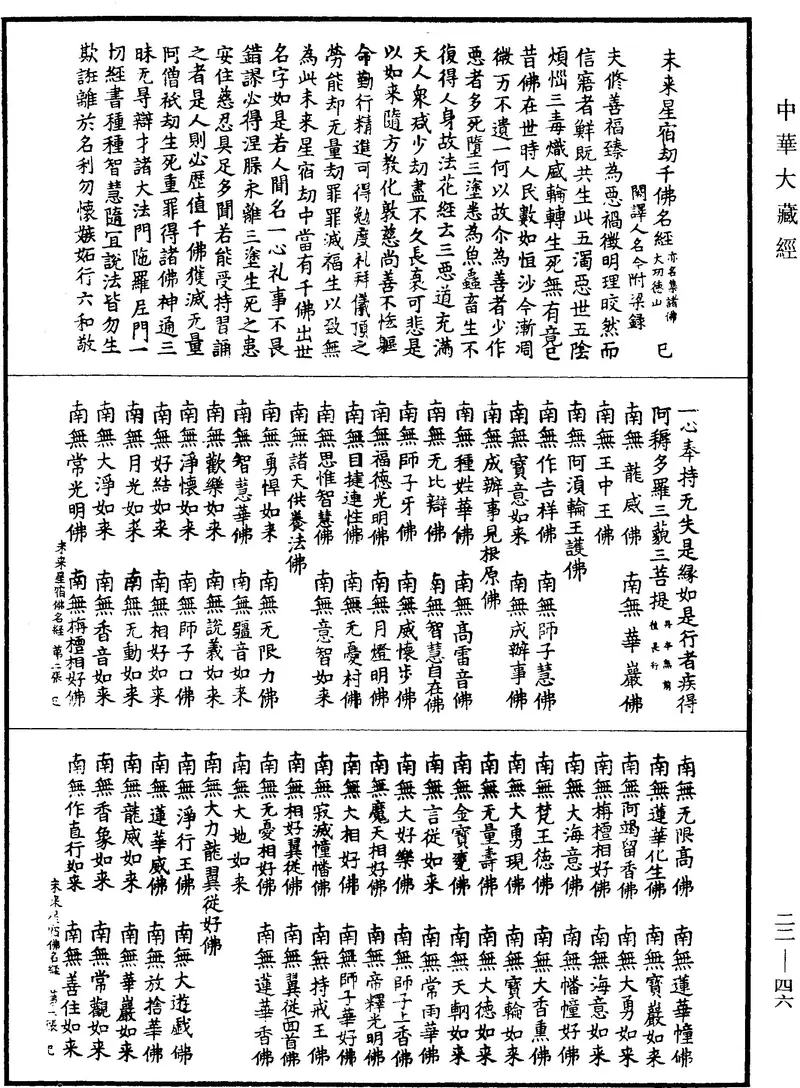 中華大藏經
二二—四六
未来星宿劫千佛名經 亦名集諸佛大功徳山 巳
闕譯人名今附梁録
夫修善福臻為惡禍徴明理皎然而
信寤者鮮既共生此五濁惡世五陰
煩惱三毒熾威輪轉生死無有竟已
昔佛在世時人民數如恒沙今漸凋
微万不遺一何以故尒為善者少作
惡者多死墮三塗悉為魚蟲畜生不
復得人身故法花經云三惡道充滿
天人衆減少劫盡不久長衰可悲是
以如来隨方教化敦慈尚善不悋軀
命勤行精進可得勉度礼拜儀頂之
勞能却无量劫罪罪滅福生以致無
為此未来星宿劫中當有千佛出世
名字如是若人聞名一心礼事不畏
錯謬必得涅槃永離三塗生死之患
安住慈忍具足多聞若能受持習誦
之者是人則必歴值千佛獲滅无量
阿僧祇劫生死重罪得諸佛神通三
昧无㝵辯才諸大法門陁羅尼門一
切經書種種智慧隨冝說法皆勿生
欺誑離於名利勿懷嫉妬行六和敬
一心奉持无失是縁如是行者疾得
阿耨多羅三藐三菩提
南無龍威佛 南無華嚴佛
南無王中王佛
南無阿須輪王護佛
南無作吉祥佛 南無師子慧佛
南無寶意如来 南無成辦事佛
南無成辦事見根原佛
南無種姓華佛 南無高雷音佛
南無无比辯佛 南無智慧自在佛
南無師子牙佛 南無威懷步佛
南無福德光明佛 南無月燈明佛
南無目捷連性佛 南無无憂村佛
南無思惟智慧佛 南無意智如来
南無諸天供養法佛
南無勇悍如来 南無无限力佛
南無智慧華佛 南無彊音如来
南無歡樂如来 南無說義如来
南無淨懷如来 南無師子口佛
南無好結如来 南無相好如来
南無月光如来 南無无動如来
南無大淨如来 南無香音如来
南無常光明佛 南無栴檀相好佛
未来星宿佛名經 第二張 巳
南無无限高佛 南無蓮華幢佛
南無蓮華化生佛 南無寶嚴如来
南無阿竭留香佛 南無大勇如来
南無栴檀相好佛 南無海意如来
南無大海意佛 南無幡幢好佛
南無梵王徳佛 南無大香熏佛
南無大勇現佛 南無寶輪如来
南無无量壽佛 南無大徳如来
南無金寶甕佛 南無天朝如来
南無言從如来 南無常雨華佛
南無大好樂佛 南無師子上香佛
南無魔天相好佛 南無帝釋光明佛
南無大相好佛 南無師子華好佛
南無寂滅幢幡佛 南無持戒王佛
南無相好翼從佛 南無翼從面首佛
南無无憂相好佛 南無蓮華香佛
南無大地如来
南無大力龍翼從好佛
南無淨行王佛 南無大遊戲佛
南無蓮華威佛 南無放捨華佛
南無龍威如来 南無華嚴如来
南無香象如来 南無常觀如来
南無作直行如来 南無善住如来